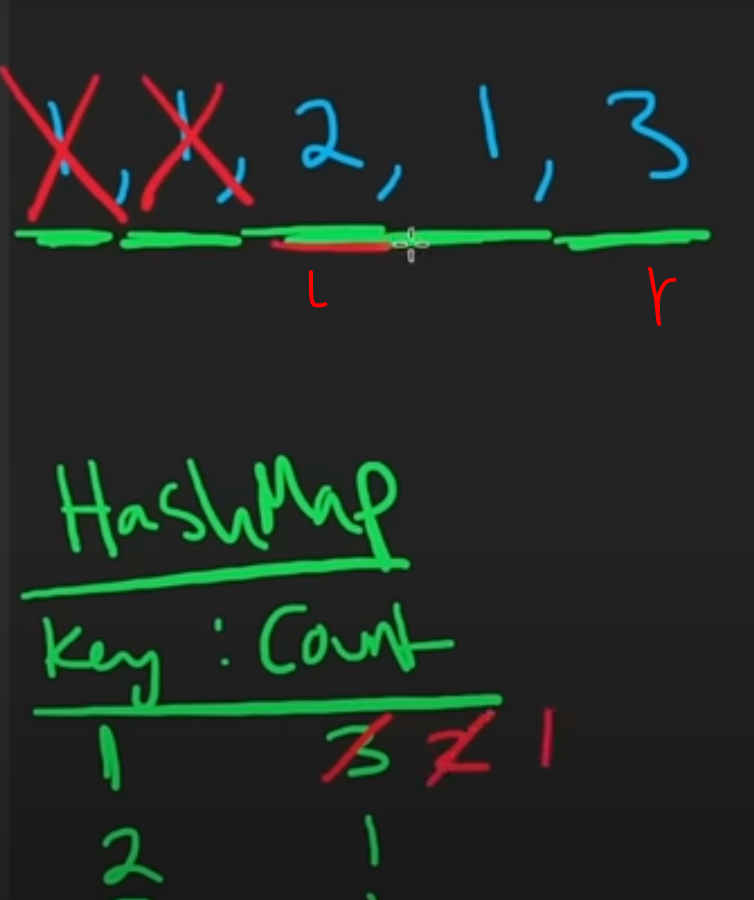 1, 1, 2, 1, 3
L r
HashMap
Key : Count
1 3 2 1
2 1